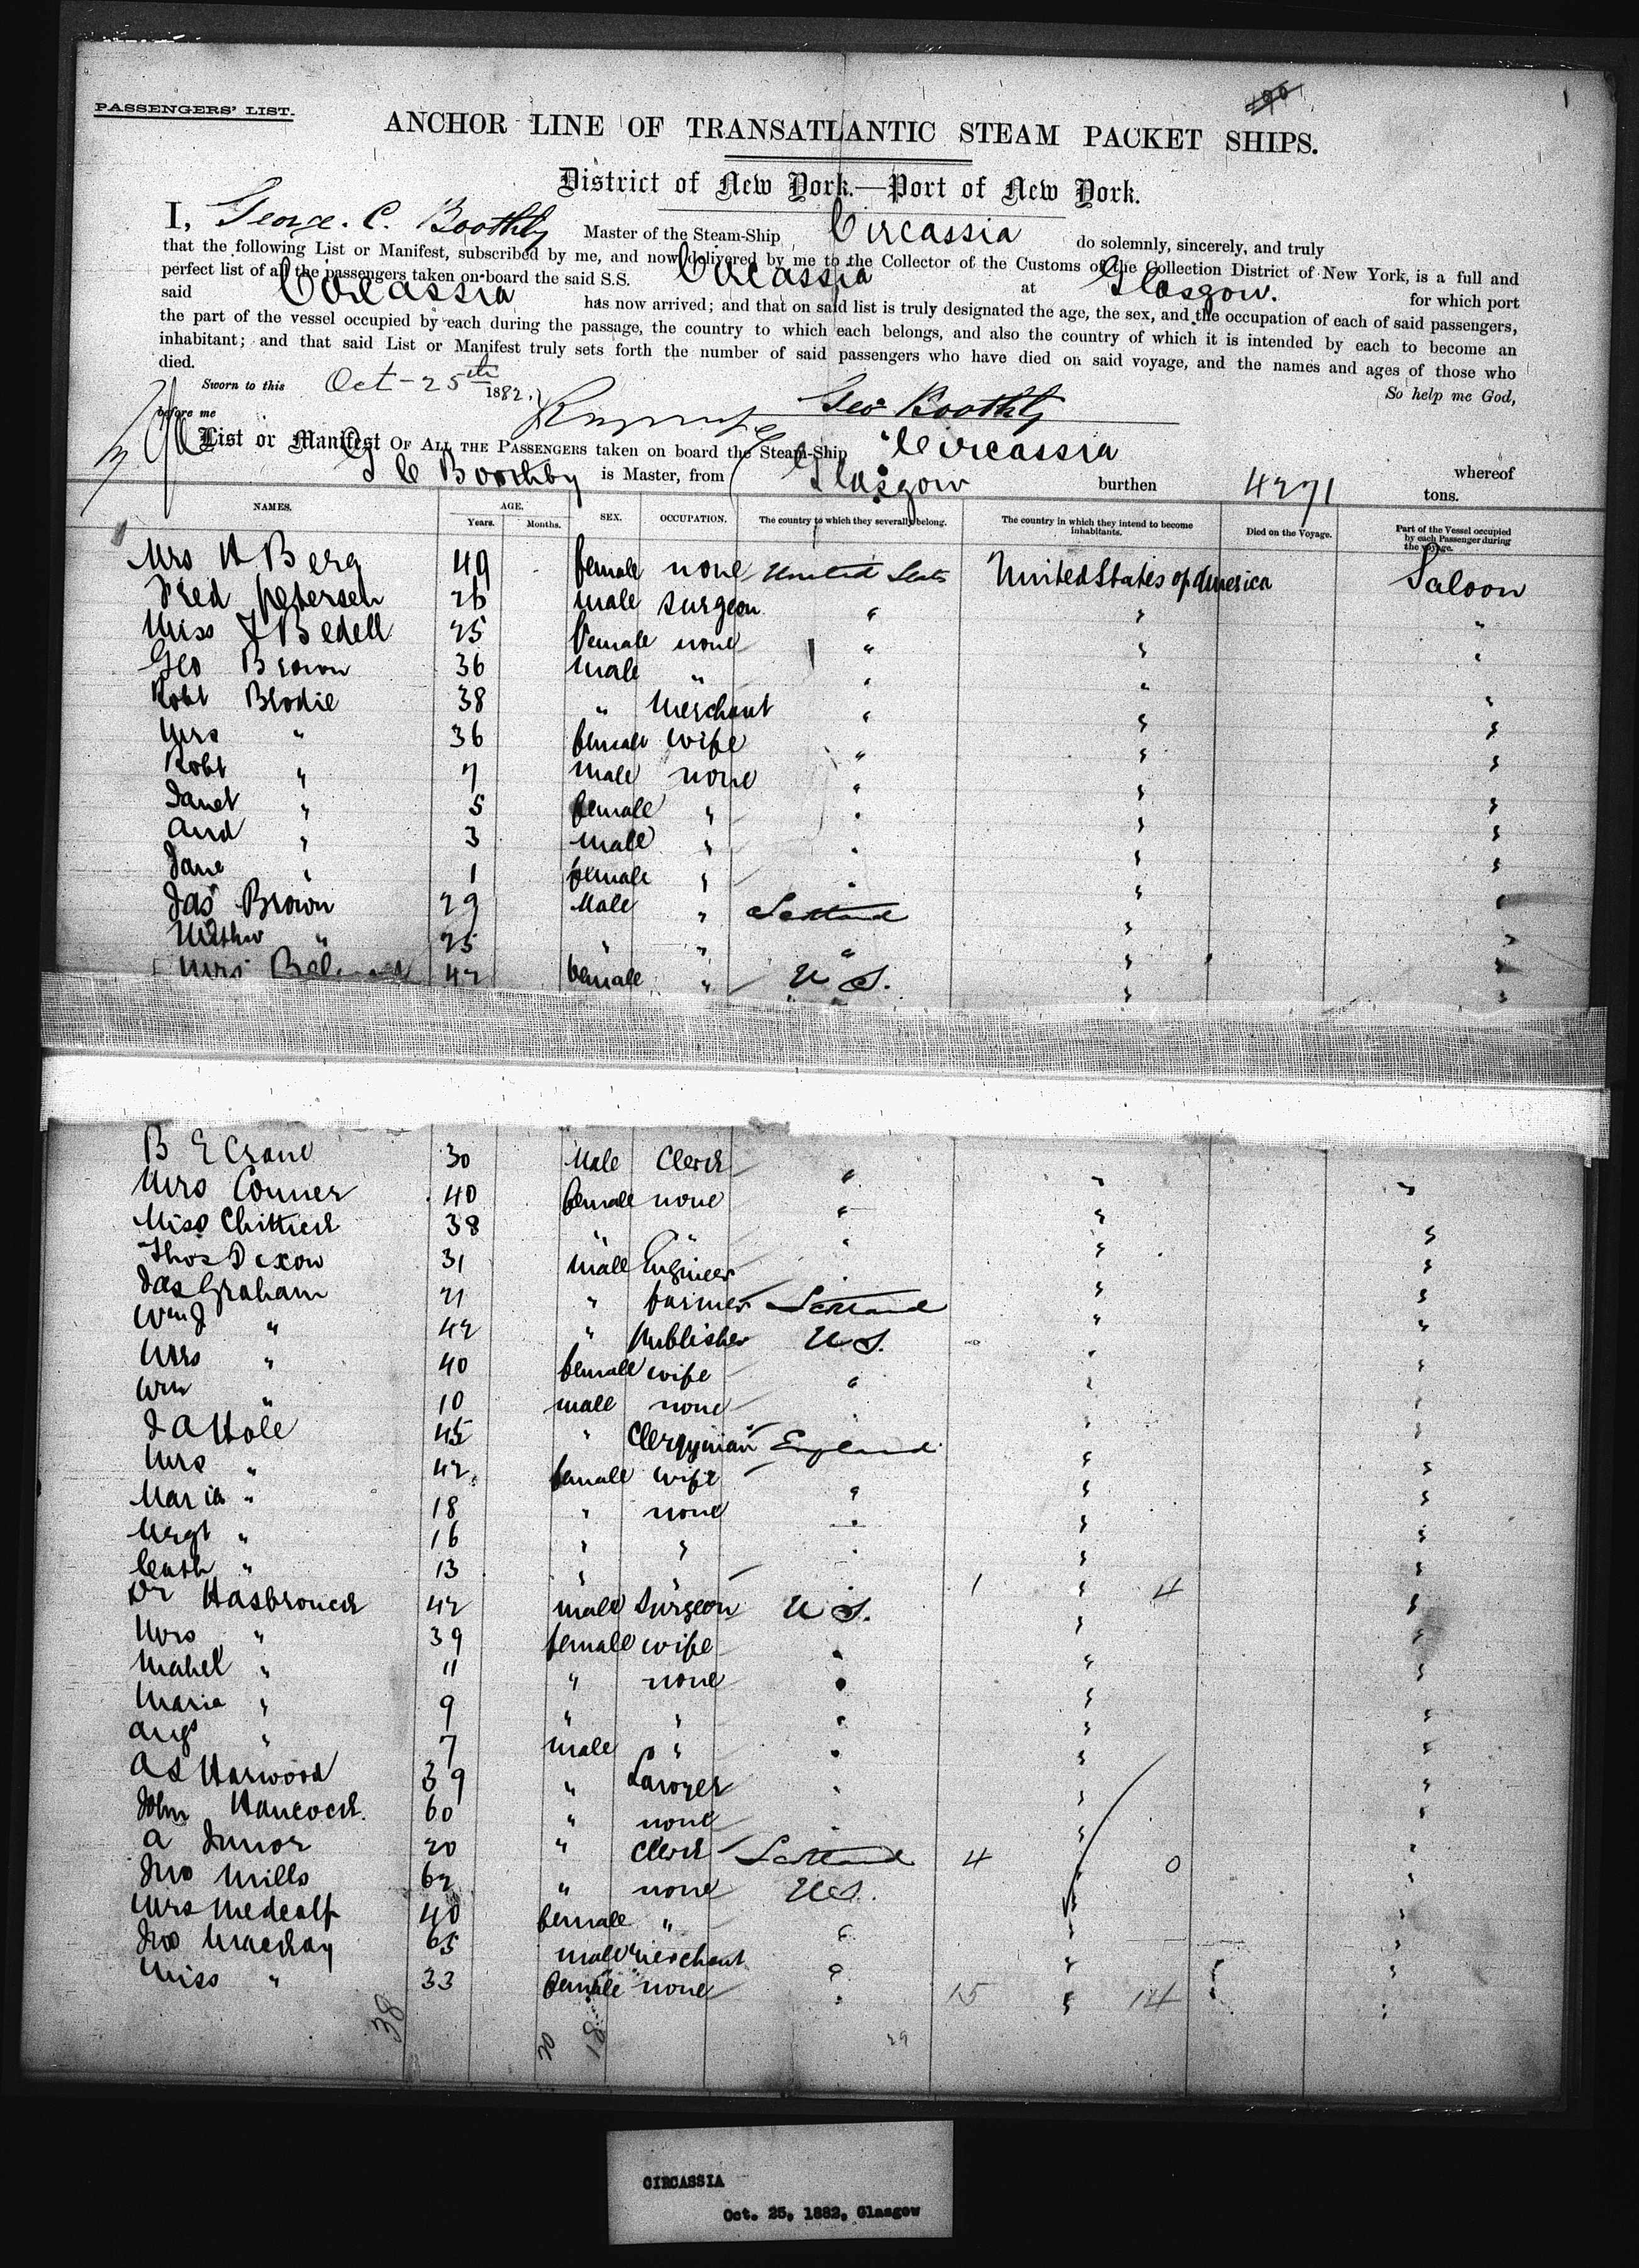 190
1
PASSENGERS' LIST.
ANCHOR LINE OF TRANSATLANTIC STEAM PACKET SHIPS.
District of New York.—Port of New York.
I, George. C. Boothby Master of the Steam-Ship Circassia do solemnly, sincerely, and truly
that the following List or Manifest, subscribed by me, and now delivered by me to the Collector of the Customs of the Collection District of New York, is a full and
perfect list of all the passengers taken on board the said S.S. Circassia at Glasgow. for which port
said Circassia has now arrived; and that on said list is truly designated the age, the sex, and the occupation of each of said passengers,
the part of the vessel occupied by each during the passage, the country to which each belongs, and also the country of which it is intended by each to become an
inhabitant; and that said List or Manifest truly sets forth the number of said passengers who have died on said voyage, and the names and ages of those who
died.
So help me God,
Sworn to this Oct - 25th 1882.
before me
Geo Boothby
List or Manifest OF ALL THE PASSENGERS taken on board the Steam-Ship Circassia whereof
G C Boothby is Master, from Glasgow burthen 4271 tons.
NAMES. AGE. Years. Months. SEX. OCCUPATION. The country to which they severally belong. The country in which they intend to become inhabitants. Died on the Voyage. Part of the Vessel occupied by each Passenger during the voyage.
Mrs H Berg 49 female none United Stats United States of America Saloon
Fred Petersen 26 male Surgeon " " "
Miss F Bedell 25 Female none " " "
Geo Brown 36 Male " " " "
Robt Brodie 38 " Merchant " " "
Mrs " 36 female wife " " "
Robt " 7 Male none " " "
Janet " 5 female " " " "
And " 3 Male " " " "
Jane " 1 female " " " "
Jas Brown 29 Male " Scotland " "
" 25 " " " " "
Mrs 42 female " U S. " "
B E Crane 30 Male Clerk " " "
Mrs Conner 40 female none " " "
Miss Chittick 38 " " " " "
Thos Dixon 31 Male Engineer " " "
Jas Graham 21 " farmer Scotland " "
Wm J " 42 " Publisher U S. " "
Mrs " 40 female wife " " "
Wm " 10 male none " " "
J A Hole 45 " Clergyman England " "
Mrs " 42 female wife " " "
Maria " 18 " none " " "
Mrgt " 16 " " " " "
Cath " 13 " " " " "
1 4
Dr Hasbrouck 42 male Surgeon U S. " "
Mrs " 39 female wife " " "
Mabel " 11 " none " " "
Maria " 9 " " " " "
Augs " 7 male " " " "
A S Harwood 39 " Lawyer " " "
John Hancock. 60 " none " " "
A Junor 20 " Clerk Scotland 4 " 0 "
Jno Mills 62 " none U S. " "
Mrs Medcalf 40 female " " " "
Jno Mackay 65 male merchant " " "
Miss " 33 female none " 15 " 14 "
38 20 18 29
CIRCASSIA
Oct. 25, 1882, Glasgow